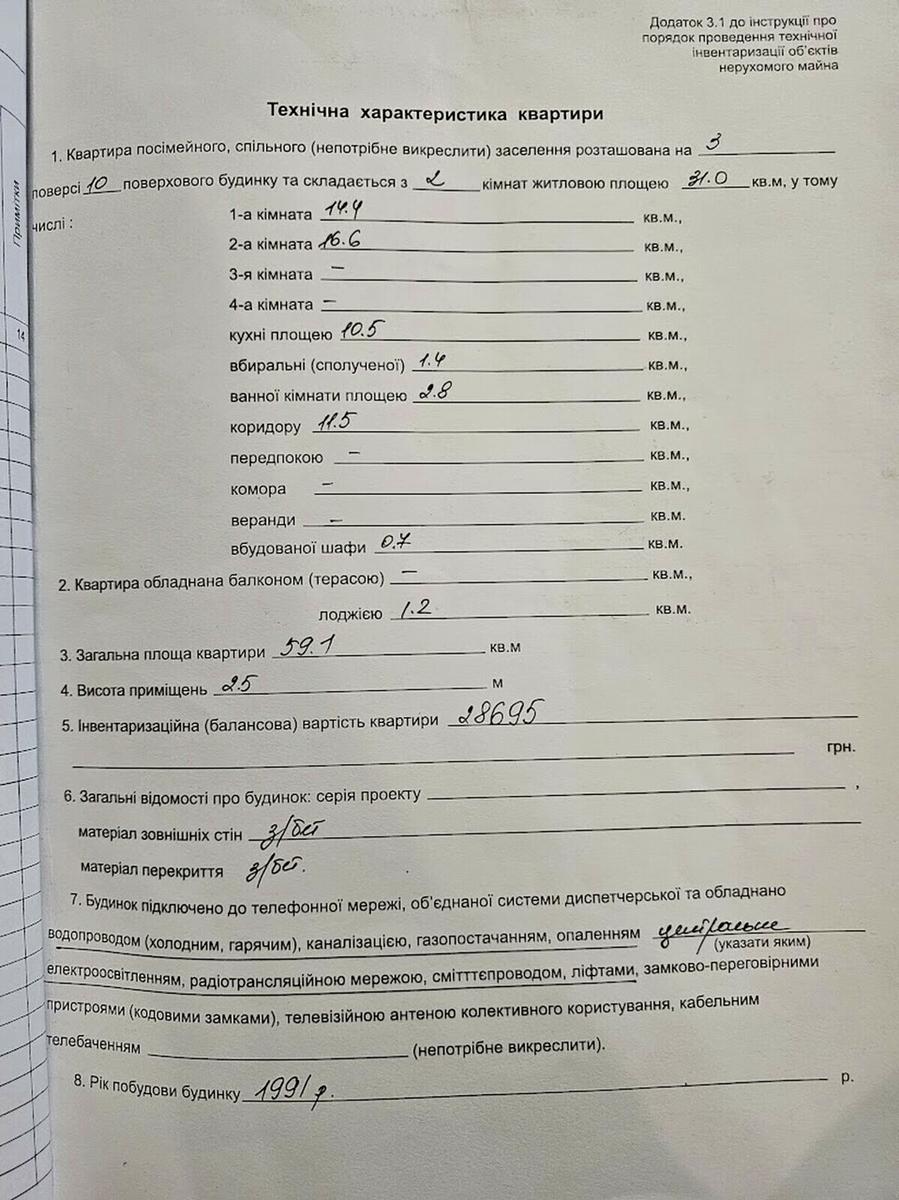 Додаток 3.1 до інструкції про
порядок проведення технічної
інвентаризації об'єктів
нерухомого майна
Технічна характеристика квартири
1. Квартира посімейного, спільного (непотрібне викреслити) заселення розташована на 3
поверсі 10 поверхового будинку та складається з 2 кімнат житловою площею 31.0 кв.м, у тому
числі :
1-а кімната 14.4 кв.м.,
2-а кімната 16.6 кв.м.,
3-я кімната – кв.м.,
4-а кімната – кв.м.,
кухні площею 10.5 кв.м.,
вбиральні (сполученої) 1.4 кв.м.,
ванної кімнати площею 2.8 кв.м.,
коридору 11.5 кв.м.,
передпокою – кв.м.,
комора – кв.м.,
веранди – кв.м.
вбудованої шафи 0.7 кв.м.
2. Квартира обладнана балконом (терасою) – кв.м.,
лоджією 1.2 кв.м.
3. Загальна площа квартири 59.1 кв.м
4. Висота приміщень 2.5 м
5. Інвентаризаційна (балансова) вартість квартири 28695
грн.
6. Загальні відомості про будинок: серія проекту ,
матеріал зовнішніх стін з/бет
матеріал перекриття з/бет.
7. Будинок підключено до телефонної мережі, об'єднаної системи диспетчерської та обладнано
водопроводом (холодним, гарячим), каналізацією, газопостачанням, опаленням центральне
(указати яким)
електроосвітленням, радіотрансляційною мережою, смітттєпроводом, ліфтами, замково-переговірними
пристроями (кодовими замками), телевізійною антеною колективного користування, кабельним
телебаченням (непотрібне викреслити).
8. Рік побудови будинку 1991 р. р.
Примітки
14